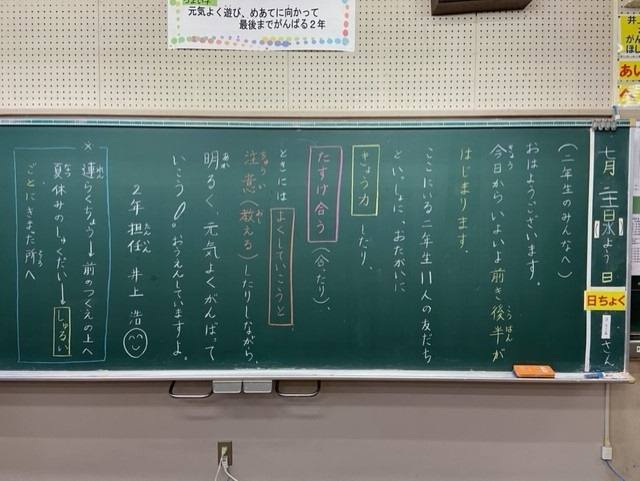 元気よく遊び、めあてに向かって
最後までがんばる2年
七月二十日水よう日
日ちょく
さん
(二年生のみんなへ)
おはようございます。
今日からいよいよ前き後半が
きょう
こうはん
はじまります。
ここにいる二年生11人の友だち
といっしょに、おたがいに
きょう力したり、
たすけ合う(合ったり)、
ときにはよくしていこうと
注意(教える)したりしながら、
ちゅうい
明るく、元気よくがんばって
あか
いこう!おうえんしていますよ。
2年担任 井上 浩
たんにん
※連らくちょう→前のつくえの上へ
れん
夏休みのしゅくだい→しゅるい
なつ
ごとにきまた所へ